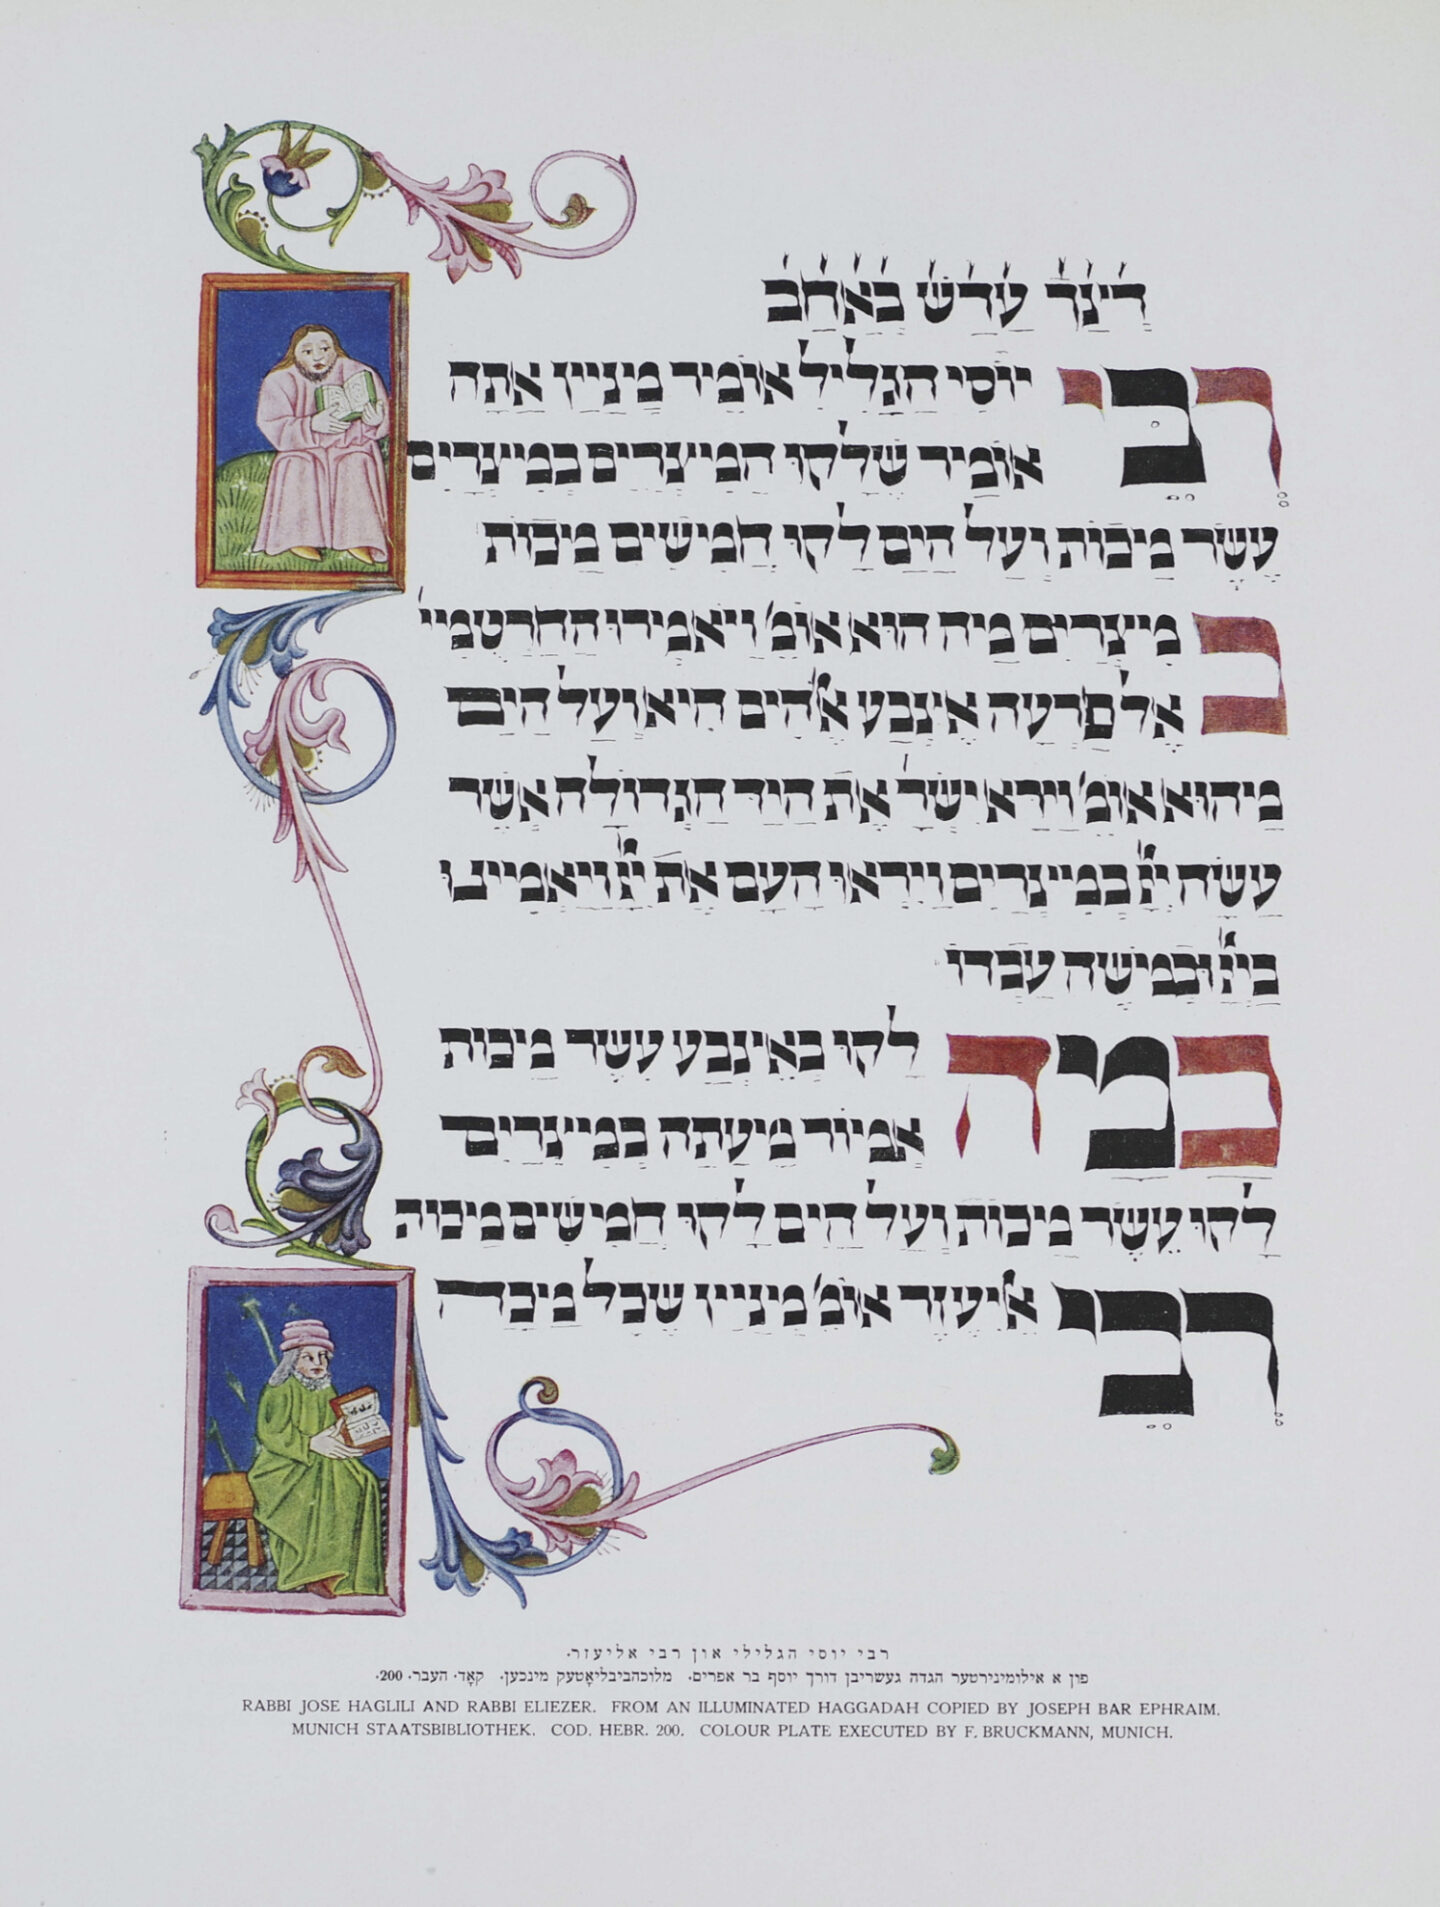 דִינַד עַדַש בְאַחַב
רְבִי יוֹסֵי הַגְלִילִי אוֹמֵיר מִינַיין אַתָה
אוֹמֵיר שֶלָקוּ הַמִיצְרִים בְמִיצְרַיִם
עֶשֶר מַיכּוֹת וְעַל הַיָם לָקוּ חֲמִישִים מַיכּוֹת
בְמִיצְרַיִם מַיה הוּא אוֹמֵ' וַיֹאמְירוּ הַחַרְטֻמִיי'
אֶל פַרְעֹה אֶינְבַע אֱלֹהִים הִיא וְעַל הַיָם
מַיהוּא אוֹמֵ' וַירַא יִשְרָ' אֶת הַיַד הַגְדוֹלָה אֲשֶר
עָשָה יְיָ בְמִיצְרַיִם וַיִירְאוּ הָעָם אֶת יְיָ וַיַאֲמִיינוּ
בַיְיָ וּבְמֹישֶה עַבְדוֹ
כַמָה לָקוּ בְאֶינְבַע עֶשֶר מַיכּוֹת
אֱמוֹיר מֵיעַתָה בְמִיצְרַיִם
לָקוּ עֶשֶר מַיכּוֹת וְעַל הַיָם לָקוּ חֲמִישִים מַיכּוֹת
רְבִי אֱלִיעֶזֶר אוֹמֵ' מִינַיין שֶכָל מַיכָה
רבי יוסי הגלילי און רבי אליעזר.
פון א אילומינירטער הגדה געשריבן דורך יוסף בר אפרים. מלוכהביבליאָטעק מינכען. קאָד. העבר. 200.
RABBI JOSE HAGLILI AND RABBI ELIEZER. FROM AN ILLUMINATED HAGGADAH COPIED BY JOSEPH BAR EPHRAIM.
MUNICH STAATSBIBLIOTHEK. COD. HEBR. 200. COLOUR PLATE EXECUTED BY F. BRUCKMANN, MUNICH.